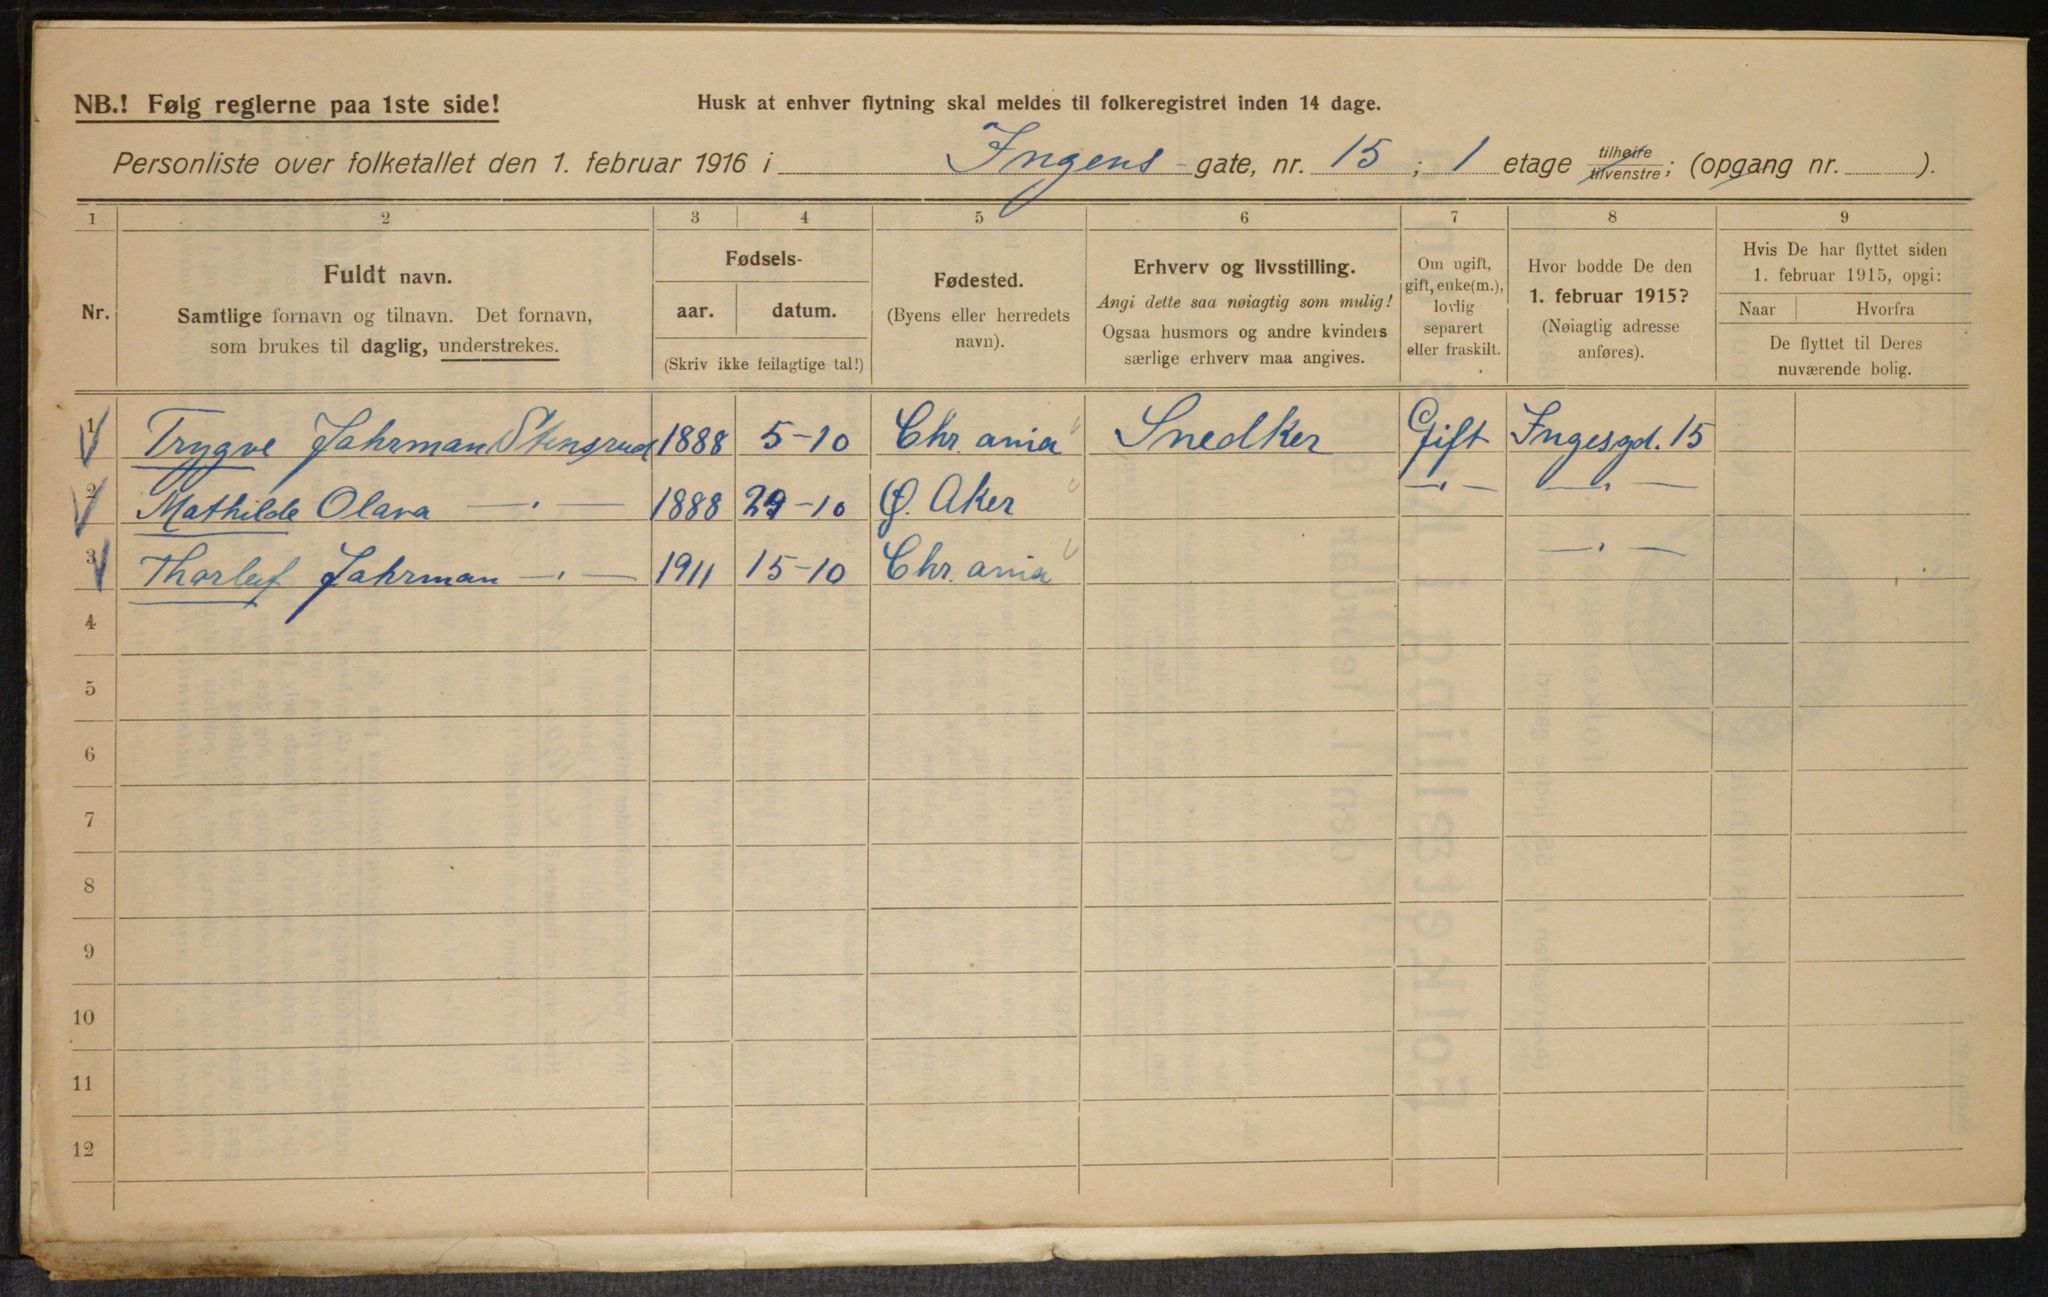 NB.! Følg reglerne paa 1ste side!
Husk at enhver flytning skal meldes til folkeregistret inden 14 dage.
Personliste over folketallet den 1. februar 1916 i Ingens gate, nr. 15; 1 etage tilhøire tilvenstre; (opgang nr. ).
1 2 3 4 5 6 7 8 9
Nr.
Fuldt navn.
Samtlige fornavn og tilnavn. Det fornavn,
som brukes til daglig, understrekes.
Fødsels-
aar. datum.
(Skriv ikke feilagtige tal!)
Fødested.
(Byens eller herredets
navn).
Erhverv og livsstilling.
Angi dette saa nøiagtig som mulig!
Ogsaa husmors og andre kvinders
særlige erhverv maa angives.
Om ugift,
gift, enke(m.),
lovlig
separert
eller fraskilt.
Hvor bodde De den
1. februar 1915?
(Nøiagtig adresse
anføres).
Hvis De har flyttet siden
1. februar 1915, opgi:
Naar Hvorfra
De flyttet til Deres
nuværende bolig.
1 Trygve Jahrman Stensrud 1888 5-10 Chr. ania Snedker Gift Ingesgd. 15
2 Mathilde Olava —·— 1888 29-10 Ø. Aker —·— —·—
3 Thorleif Jahrman —·— 1911 15-10 Chr. ania —·—
4
5
6
7
8
9
10
11
12